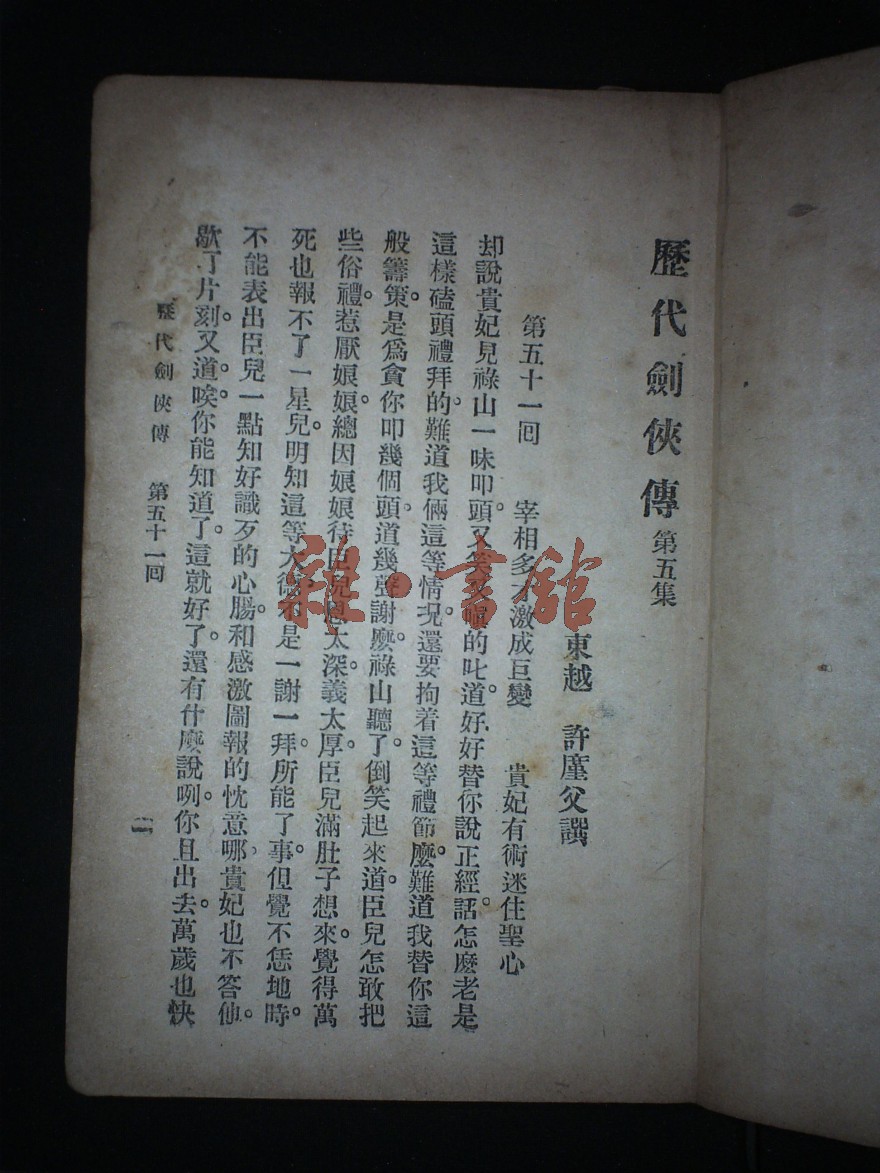 歷代劍俠傳 第五集
東越 許廑父譔
第五十一回 宰相多才激成巨變 貴妃有術迷住聖心
却說貴妃見祿山一味叩頭。又笑又嗔的叱道。好好替你說正經話。怎麽老是
這樣磕頭禮拜的。難道我倆這等情况。還要拘着這等禮節麽。難道我替你這
般籌策。是爲貪你叩幾個頭。道幾聲謝麽。祿山聽了。倒笑起來道。臣兒怎敢把
些俗禮惹厭娘娘。總因娘娘待臣兒恩太深。義太厚。臣兒滿肚子想來。覺得萬
死也報不了一星兒。明知這等大德。不是一謝一拜。所能了事。但覺不恁地時。
不能表出臣兒一點知好識歹的心腸。和感激圖報的忱意哪。貴妃也不答他。
歇了片刻。又道。唉。你能知道了。這就好了。還有什麽說咧。你且出去。萬歲也快
歷代劍俠傳 第五十一回
一
雜·書館